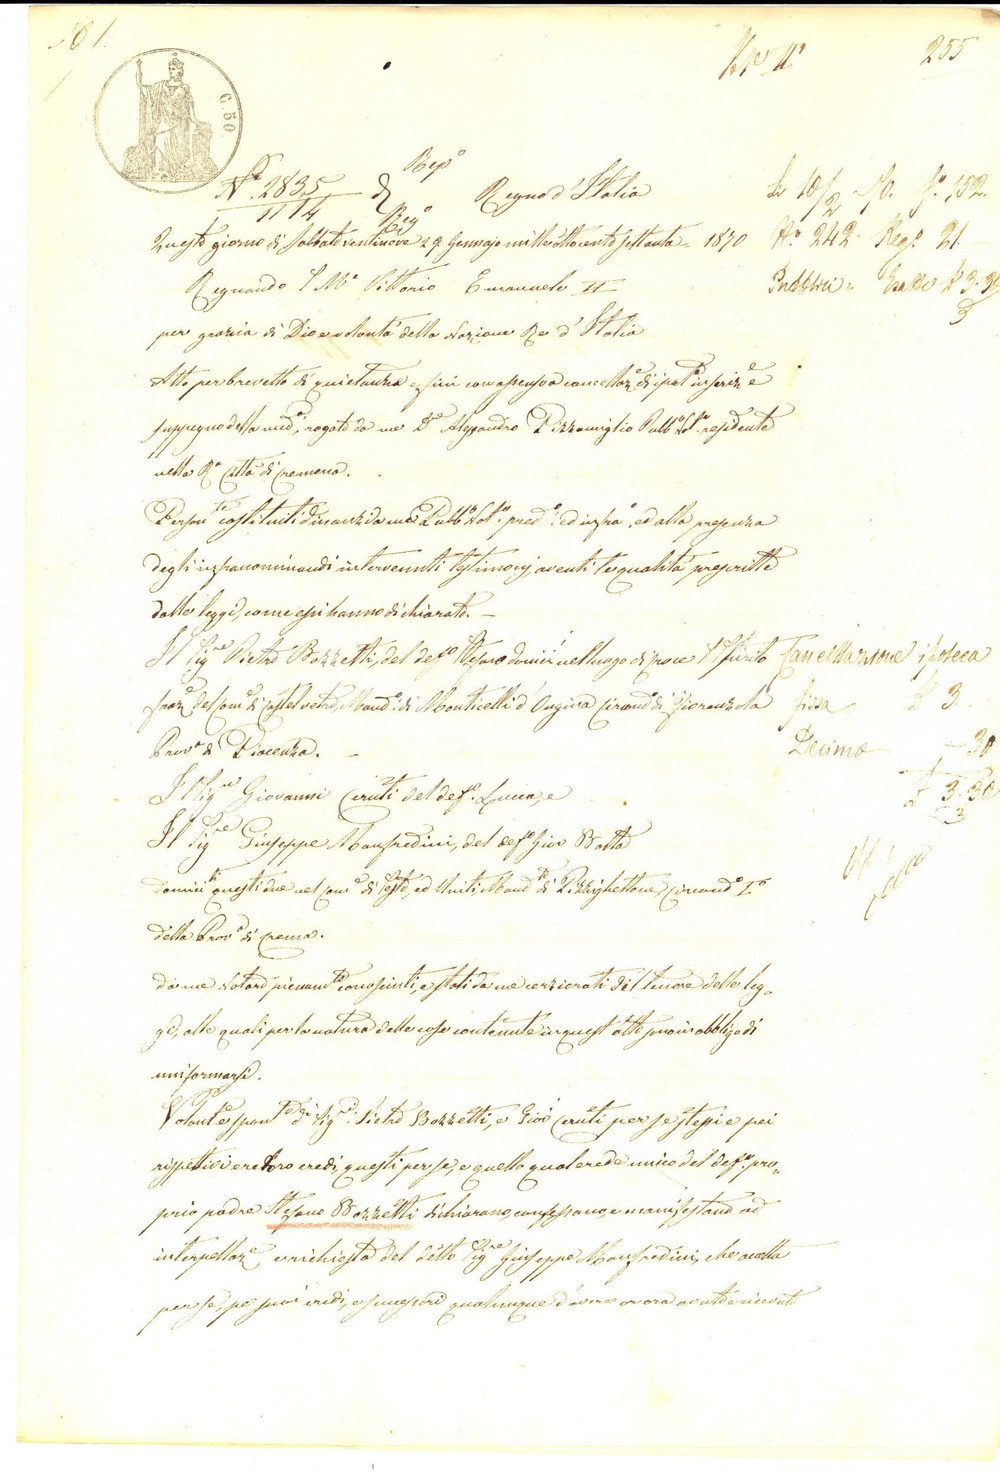 161.
255
C. 50
N° 2835 di Rep°
1114 Reg°
Regno d'Italia
Li 10/2 70. f° 152.
Questo giorno di Sabbato ventinove 29 Gennajo mille ottocento settanta 1870
N° 242 Reg° 21.
Regnando S. Mª Vittorio Emanuele II
Pubblici Esatte £ 3.30
per grazia di Dio e volontà della Nazione Re d'Italia
Atto per brevetto di quietanza e fini con assenso a cancellaz.e di ipot.a inscriz.e e
suppegno della med.a, rogato da me D.re Alessandro Pizzamiglio Pubb.o Not.o residente
nella R.a Città di Cremona.
Person.te costituiti dinanzi da me Pubb.o Not.o pred.o ed infra.o, ed alla presenza
degli infranominandi intervenuti testimonj aventi le qualità prescritte
dalle leggi, come essi hanno dichiarato. –
Il Sig.re Pietro Bozzetti, del def.o Stefano domic.i nel luogo di Croce S. Spirito
Cancellazione ipoteca
fraz.e del Com.e di Castelvetro, Mand.o di Monticelli d'Ongina Circond.o di Fiorenzola
fissa £ 3.
Prov.a di Piacenza. –
Decimo – 30
£ 3.30
Il Sig.re Giovanni Ciruti del def.o Luca, e
Il Sig.re Giuseppe Manfredini, del def.o Gio Batta
domic.ti questi due nel Com.e di ed Uniti Mand.to di Pizzighettone, Circond.o I.o
della Prov.a di Crema.
da me Notaro pienam.te conosciuti, e stati da me cerziorati del tenore delle leg-
gi, alle quali per la natura delle cose contenute in quest'atto sono in obbligo di
uniformarsi.
Volont.e e spont.e di Sig.ri Pietro Bozzetti, e Gio.i Ciruti per se stessi e pei
rispettivi ere loro eredi, questi per se, e quello qual erede unico del def.o pro-
prio padre Stefano Bozzetti dichiarano, confessano, e manifestano ad
interpellaz.e e richiesta del detto Sig.re Giuseppe Manfredini, che accetta
per se, pe' suoi eredi, e successori qualunque d'avere or ora avuto e ricevuto